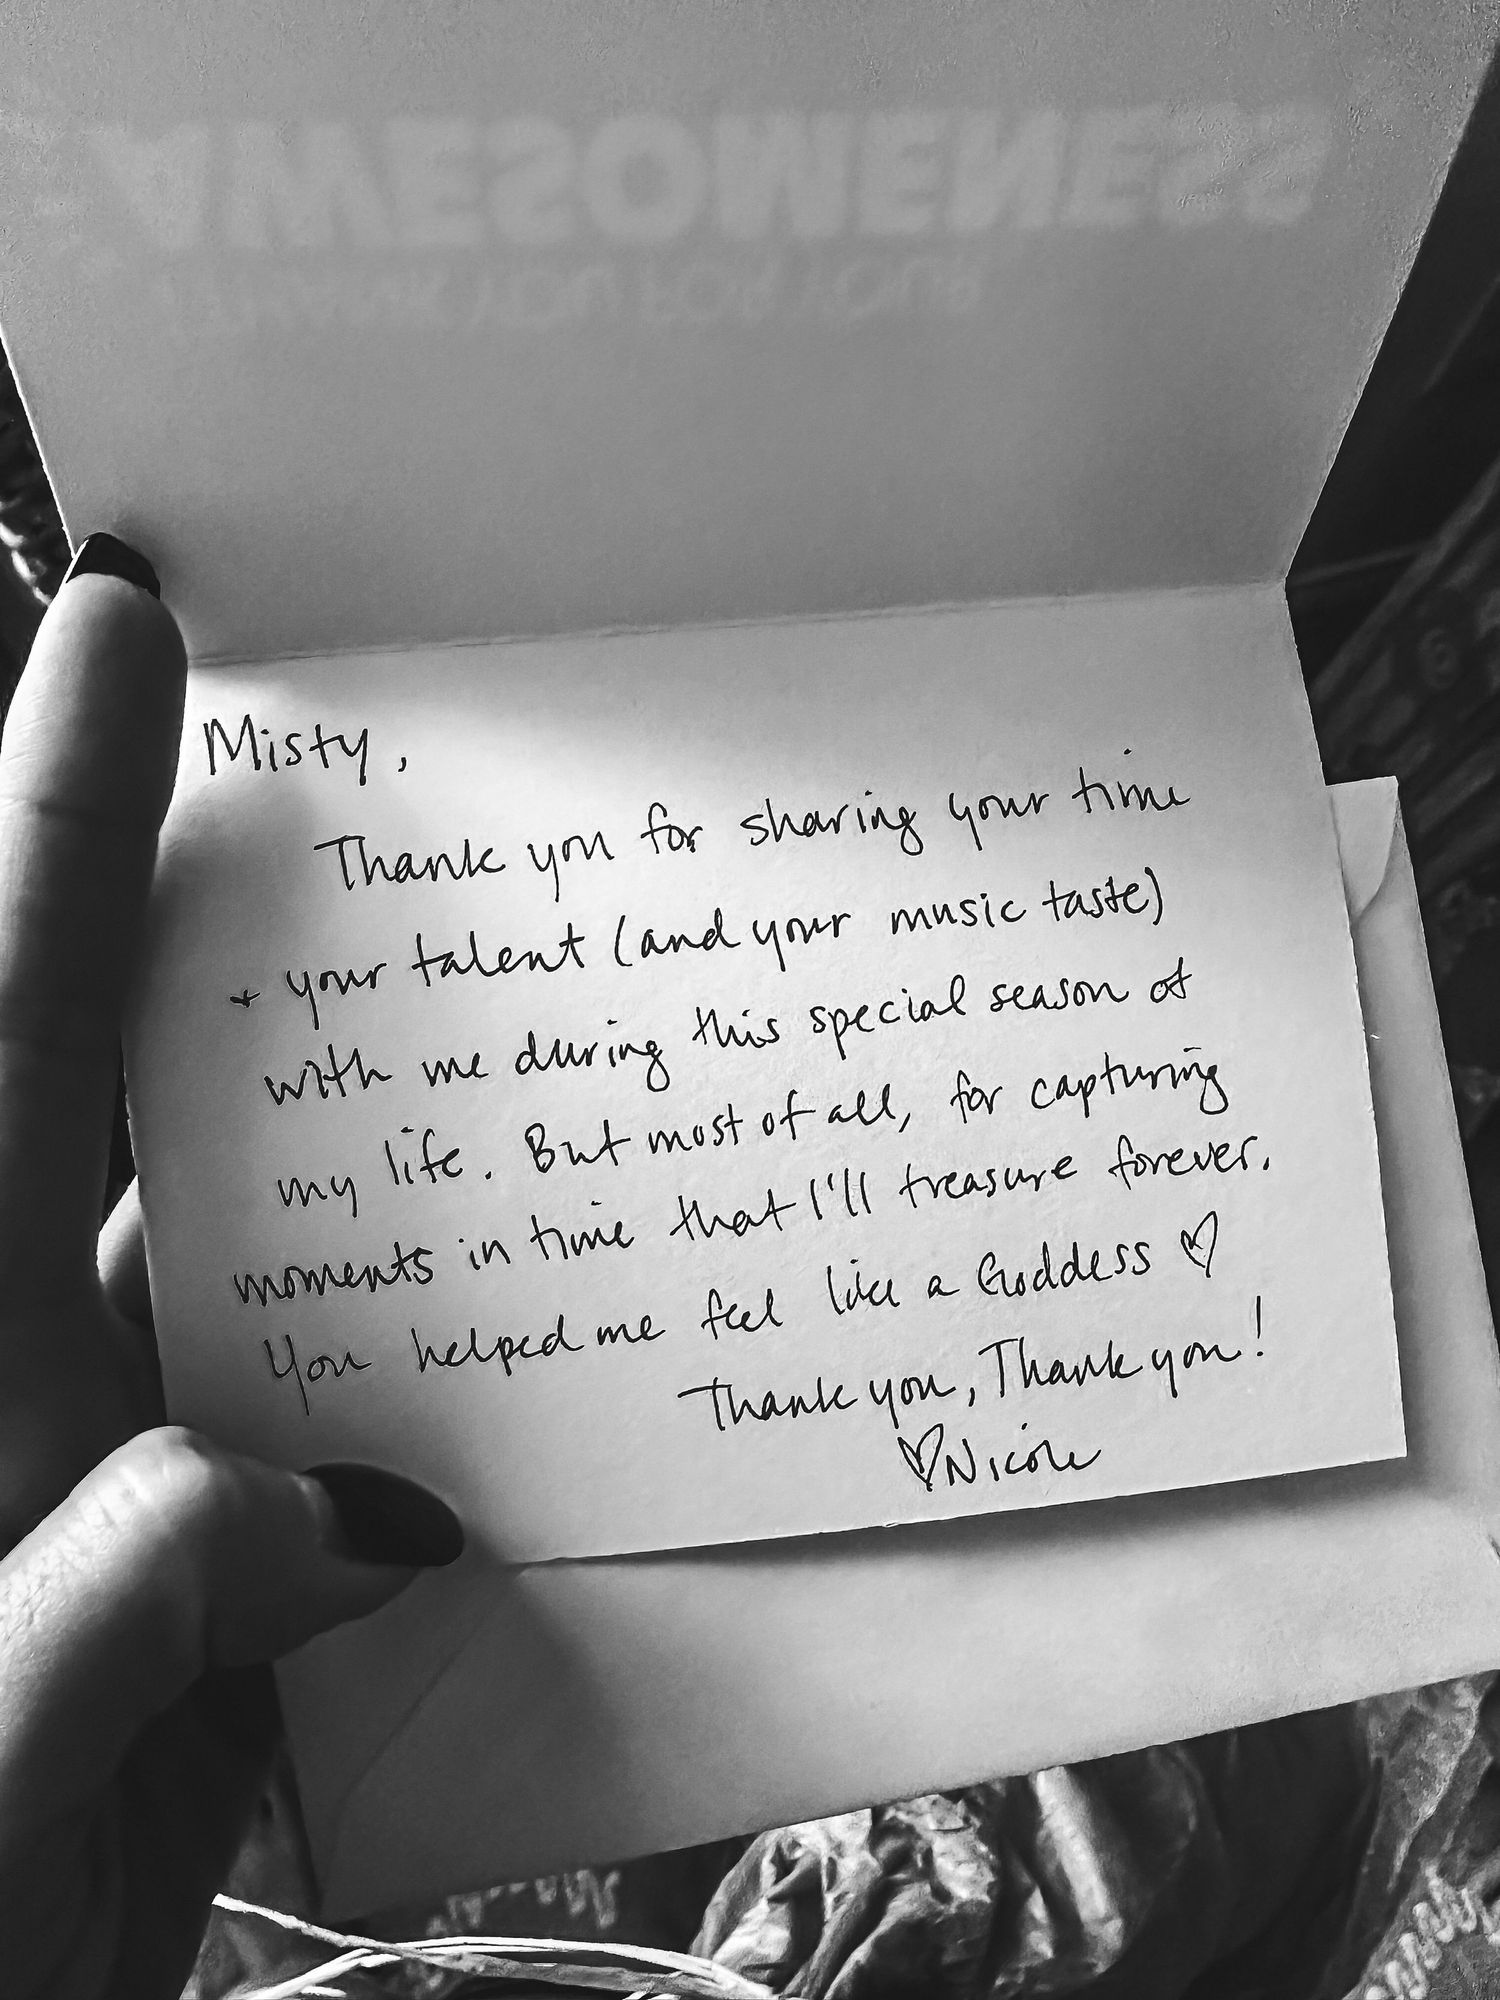 AWESOMENESS
THANK YOU FOR YOUR
Misty,
Thank you for sharing your time
+ your talent (and your music taste)
with me during this special season of
my life. But most of all, for capturing
moments in time that I'll treasure forever.
You helped me feel like a Goddess ♡
Thank you, Thank you!
♡Nicole